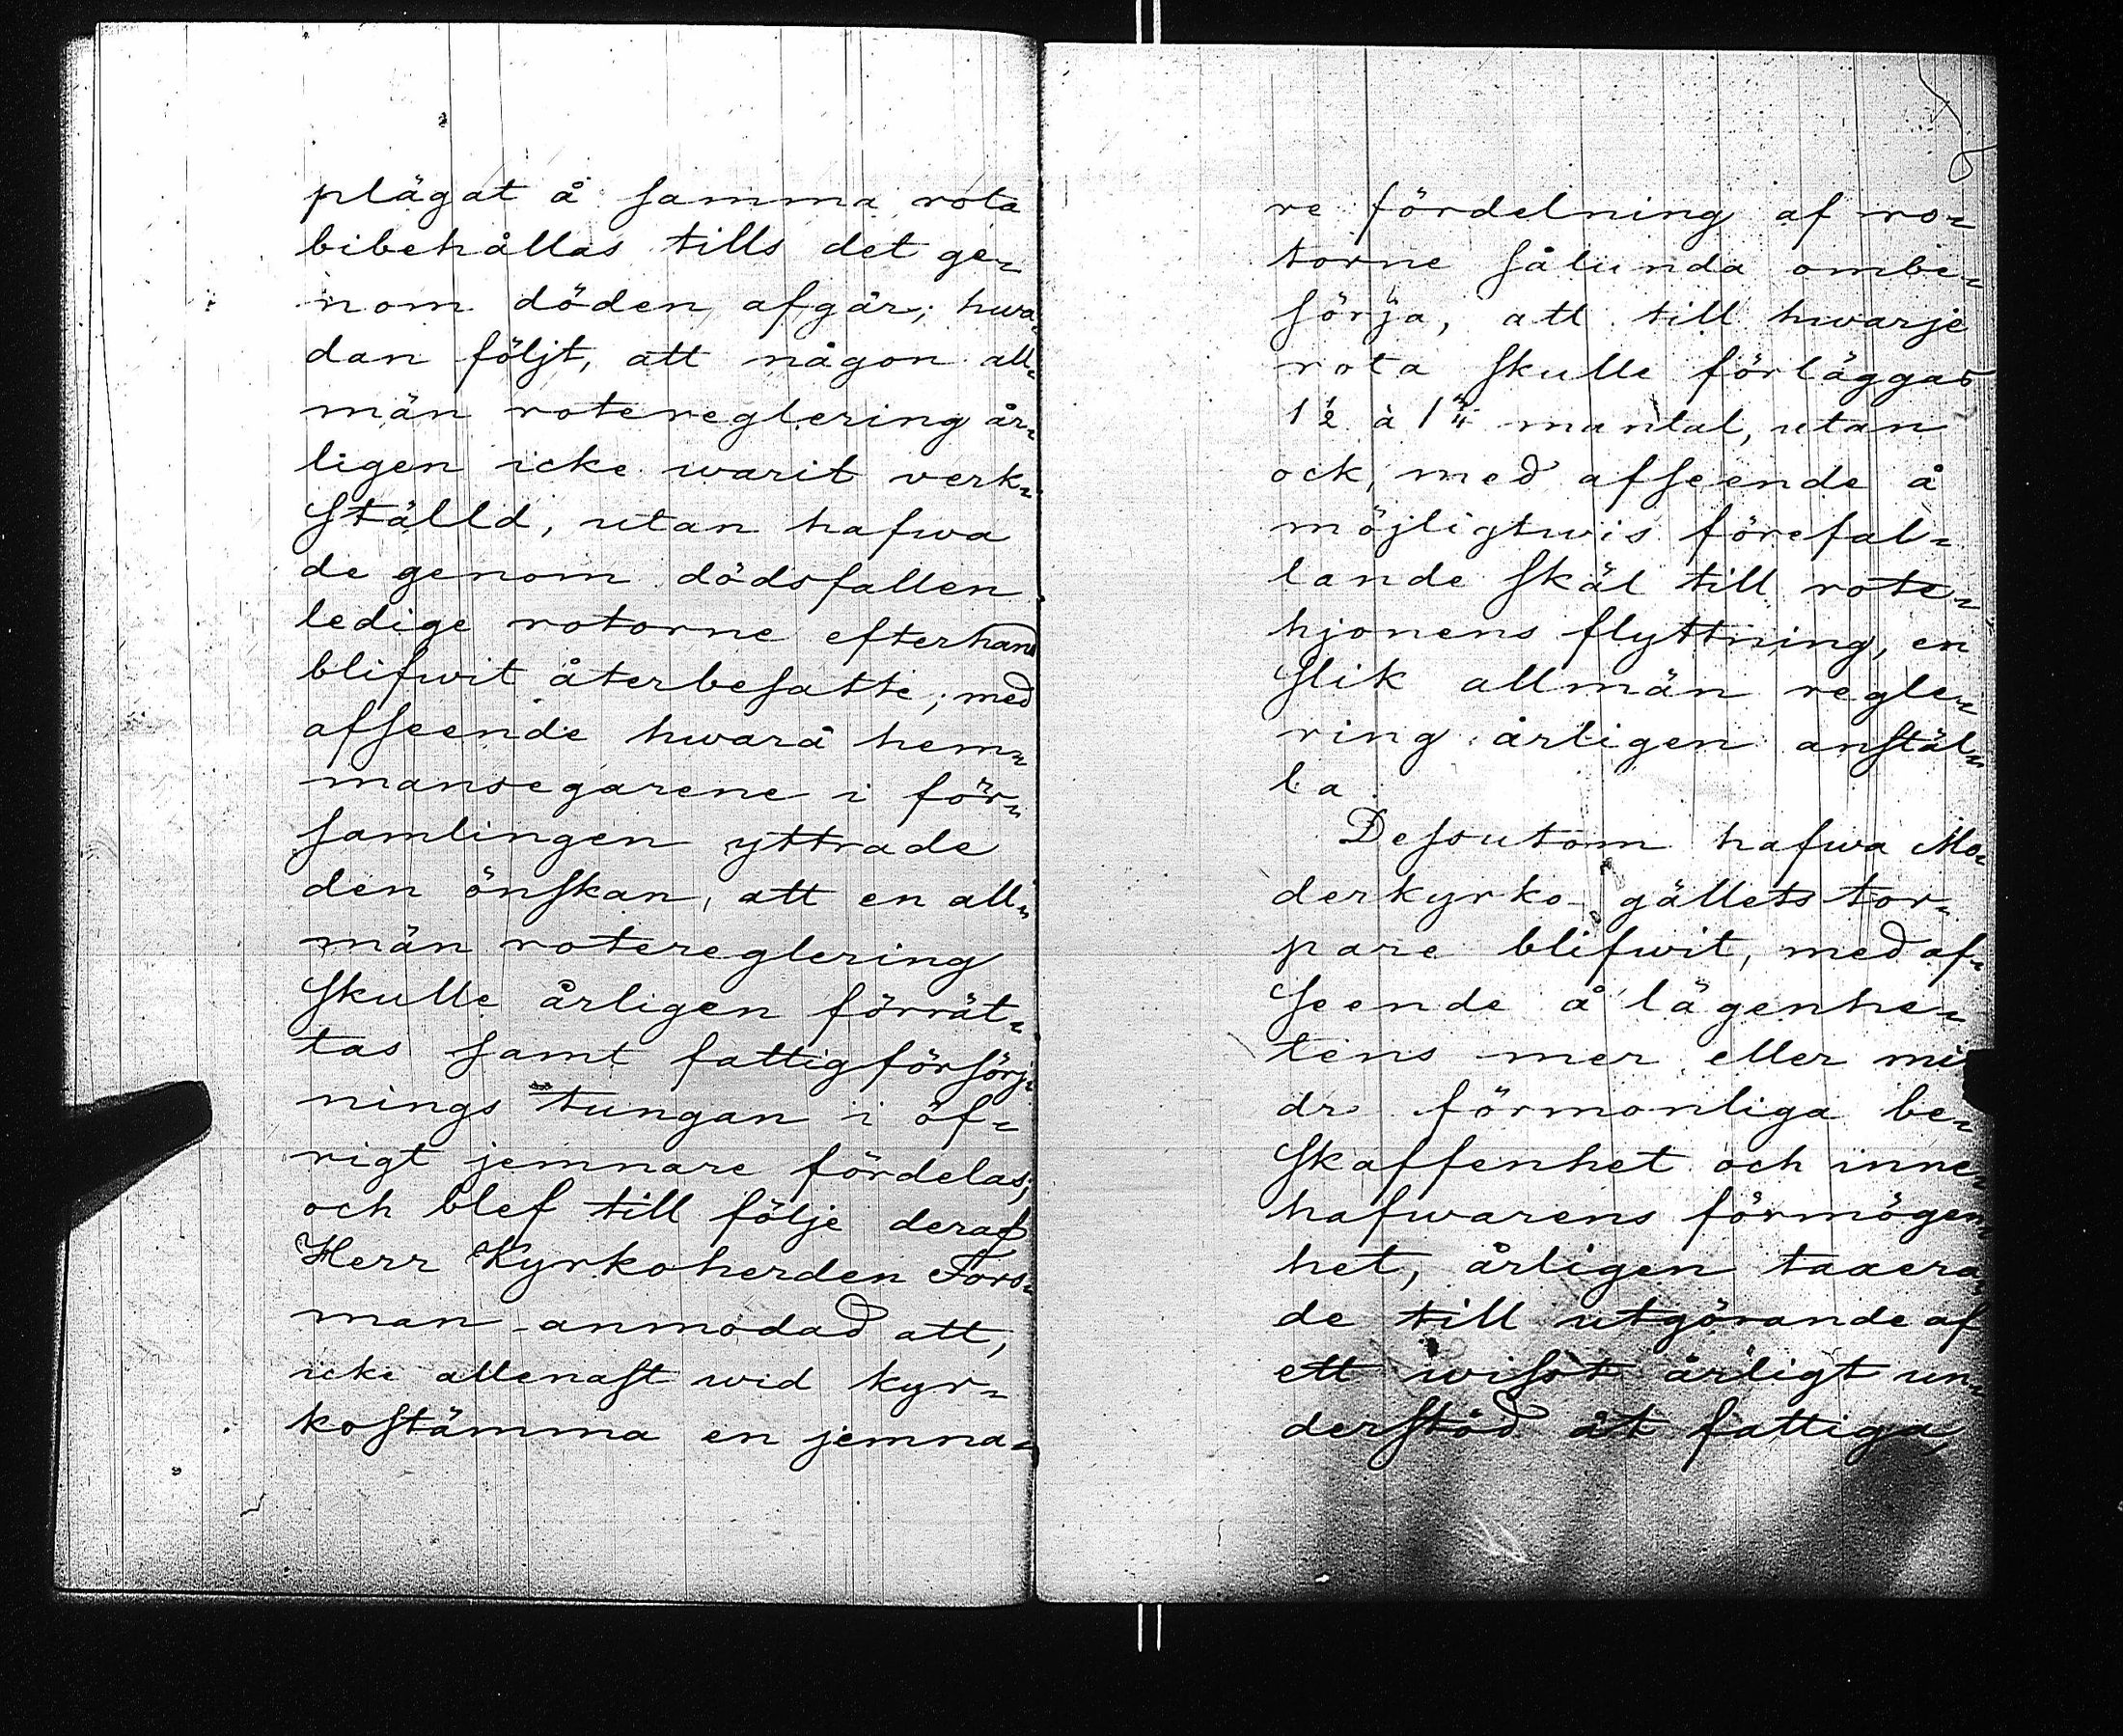 plägat å samma rota
bibehållas tills det ge-
nom döden afgår; hwa-
dan följt, att någon all-
män rotereglering år-
ligen icke warit verk-
ställd, utan hafwa
de genom dödsfallen
ledige rotorne efterhand
blifwit återbesatte; med
afseende hwarå hem-
mansegarene i för-
samlingen yttrade
den önskan, att en all-
män rotereglering
skulle årligen förrät-
tas samt fattigförsörj-
nings tungan i öf-
rigt jemnare fördelas;
och blef till följe deraf
Herr Kyrkoherden Fors-
man anmodad att,
icke allenast wid kyr-
kostämma en jemna-
re fördelning af ro-
torne sålunda ombe-
sörja, att till hwarje
rota skulle förläggas
1 1/2 à 1 3/4 mantal, utan
ock, med afseende å
möjligtwis förefal-
lande skäl till rote-
hjonens flyttning, en
slik allmän regle-
ring årligen anstäl-
la.
Dessutom hafwa Mo-
derkyrko gällets tor-
pare blifwit, med af-
seende å lägenhe-
tens mer eller min
dre förmonliga be-
skaffenhet och inne-
hafwarens förmögen-
het, årligen taxera-
de till utgörande af
ett wisst årligt un-
derstöd åt fattiga,